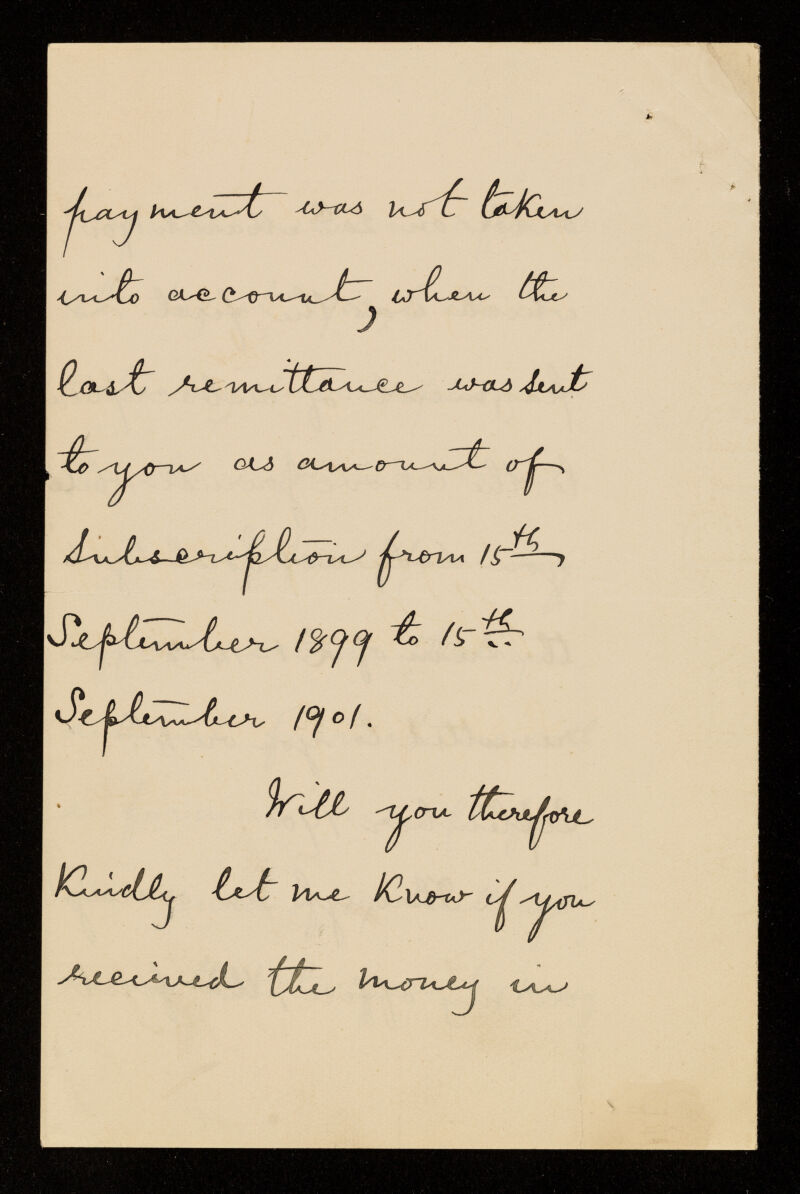 payment was not taken
into account, when the
last remittance was sent
to you as amount of
Subscription from 15th
September 1899 to 15th
September 1901.
Will you therefore
Kindly let me Know if you
received the money in